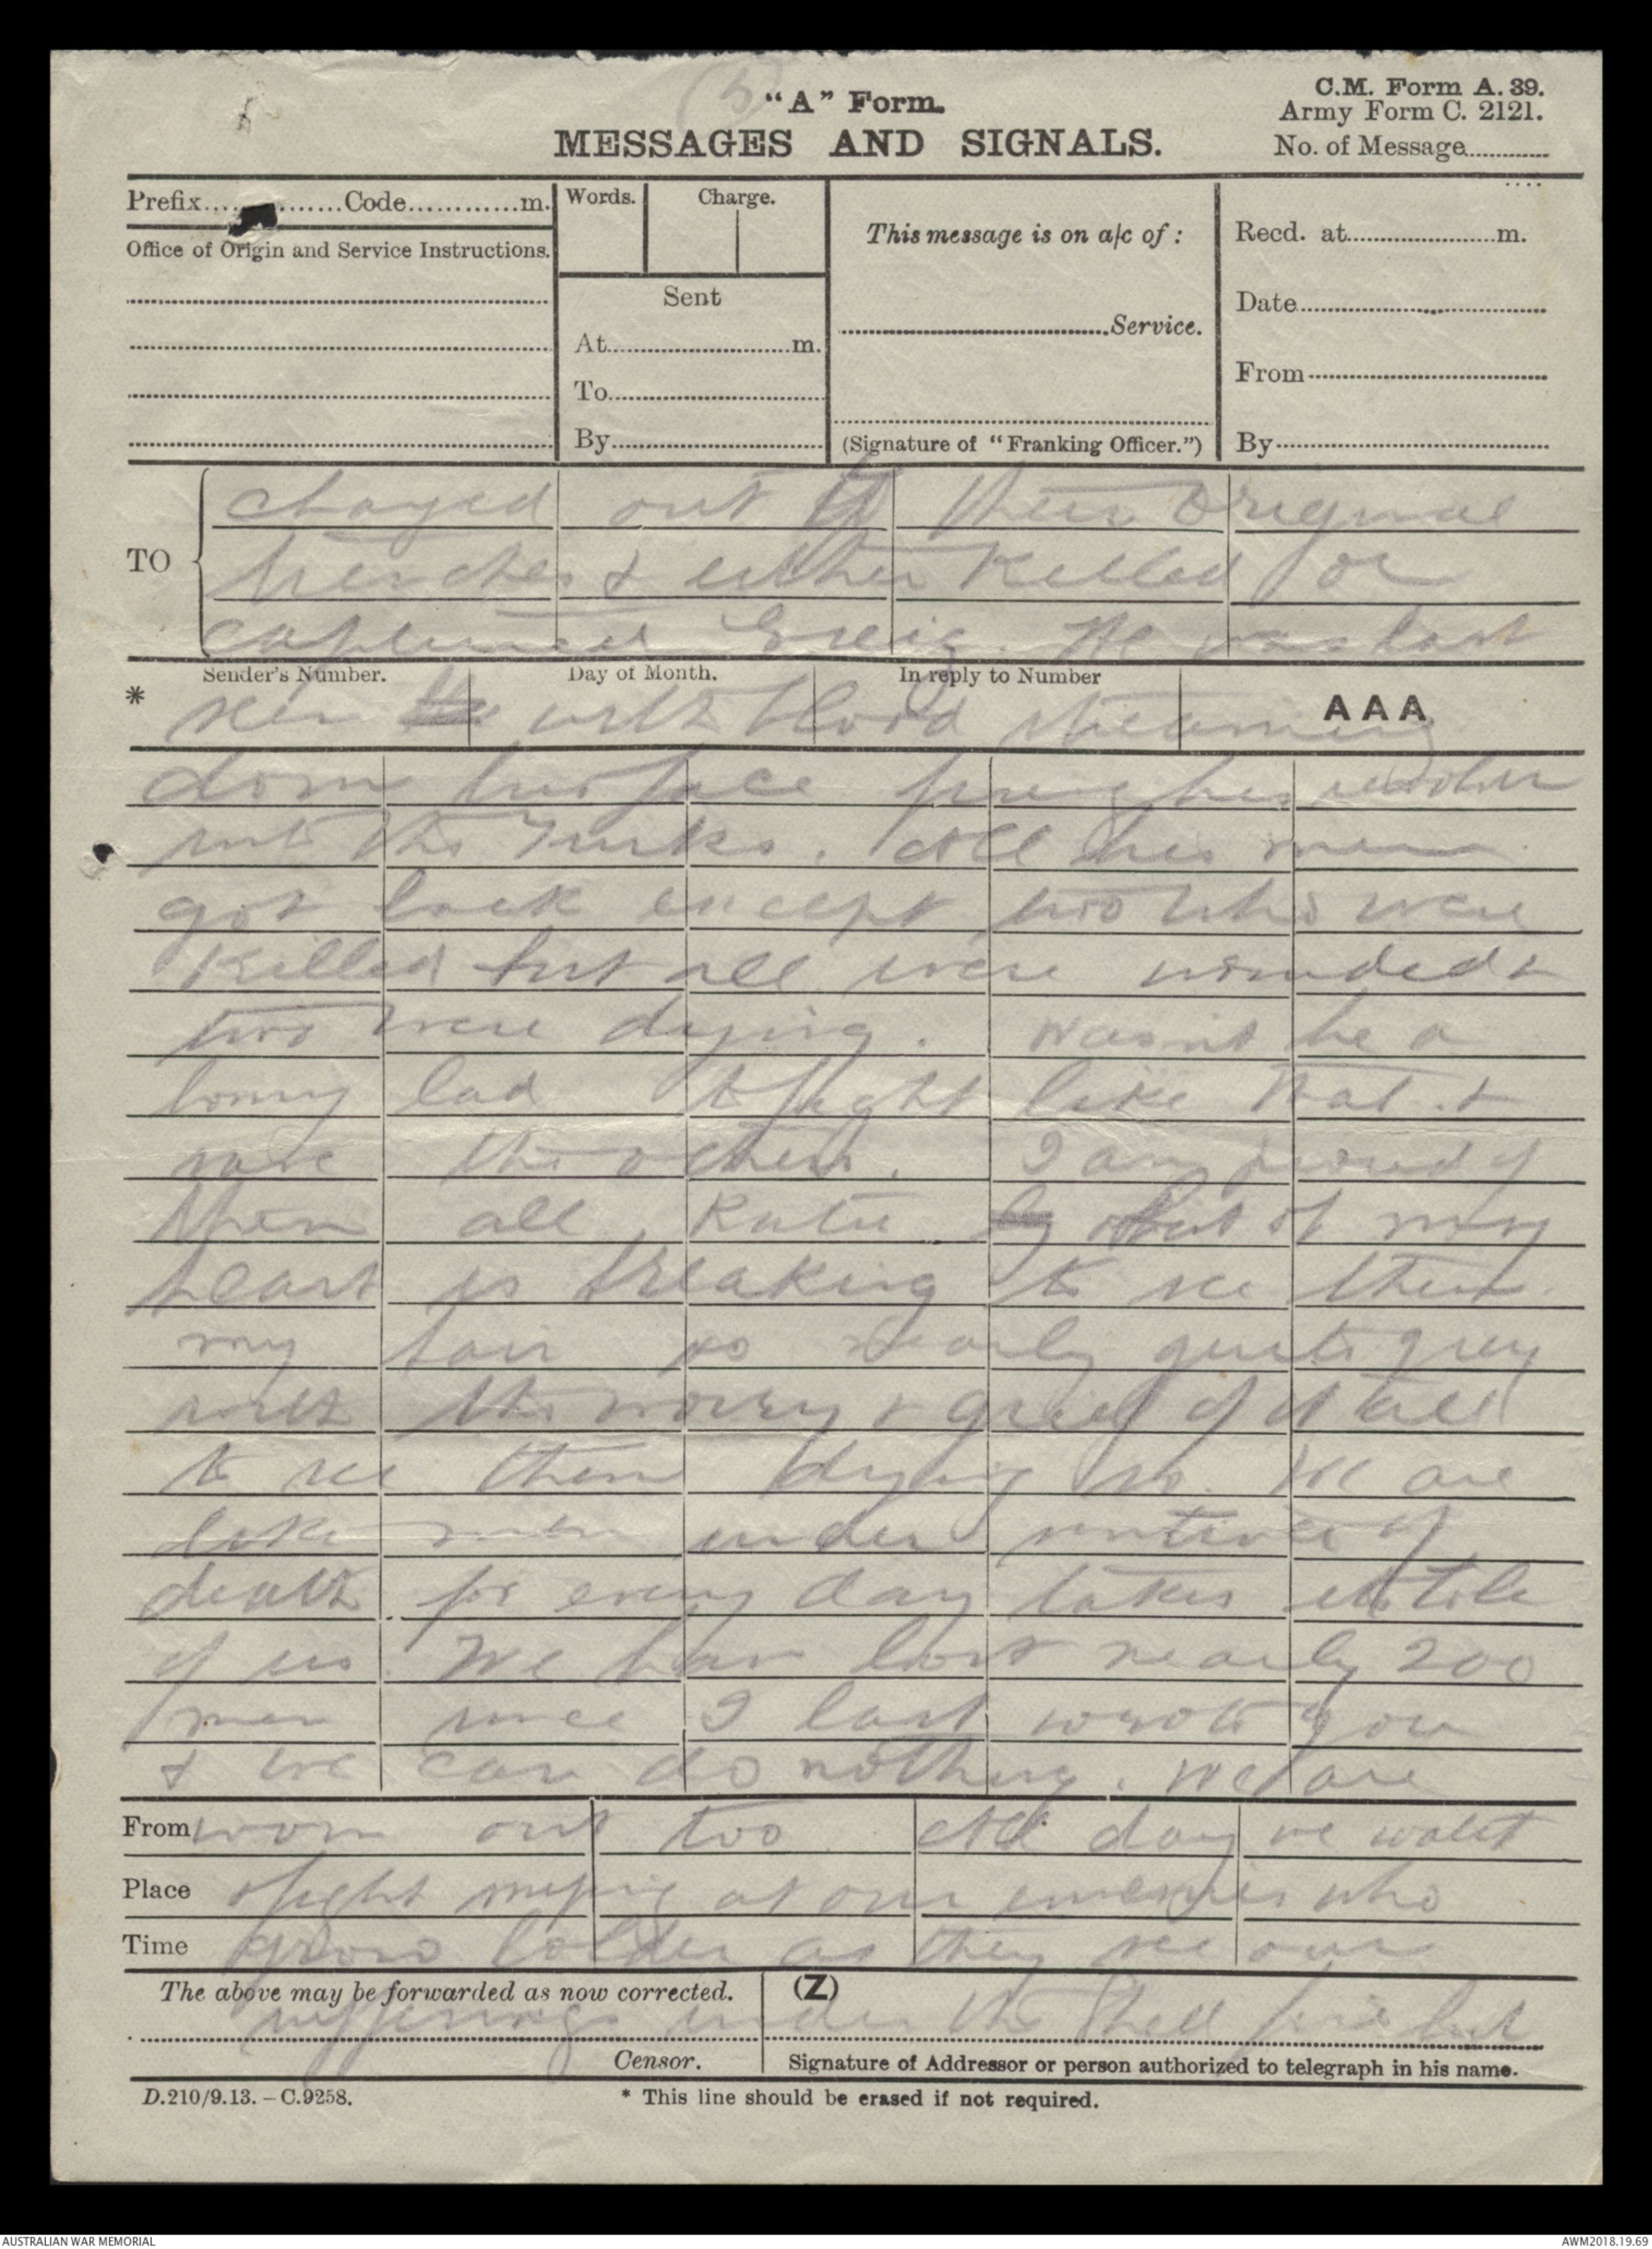 (5)
"A" Form.
MESSAGES AND SIGNALS.
C.M. Form A. 39.
Army Form C. 2121.
No. of Message............
Prefix............Code............m.
Office of Origin and Service Instructions.
Words.
Charge.
Sent
At............m.
To............
By............
This message is on a/c of :
............Service.
(Signature of "Franking Officer.")
Recd. at............m.
Date............
From............
By............
TO
charged out of their original
trenches & either killed or
captured Greig. He was last
Sender's Number.
Day of Month.
In reply to Number
* seen with blood streaming AAA
down his face firing his revolver
into the Turks. All his men
got back except two who were
killed but all were wounded &
two were dying. Wasnt he a
bonny lad to fight like that &
save the others. I am proud of
them all, Katie but my
heart is breaking to see them
my hair is nearly quite grey
with the worry & grief of it all
to see them dying so. We are
like men under sentence of
death. for every day takes its tole
of us. We have lost nearly 200
men since I last wrote you
& we can do nothing. We are
From worn out too. All day we wait
Place & fight sniping at our enemies who
Time grow bolder as they see our
The above may be forwarded as now corrected.
(Z)
sufferings under the shell fire but
Censor.
Signature of Addressor or person authorized to telegraph in his name.
D.210/9.13. – C.9258.
* This line should be erased if not required.
AUSTRALIAN WAR MEMORIAL
AWM2018.19.69